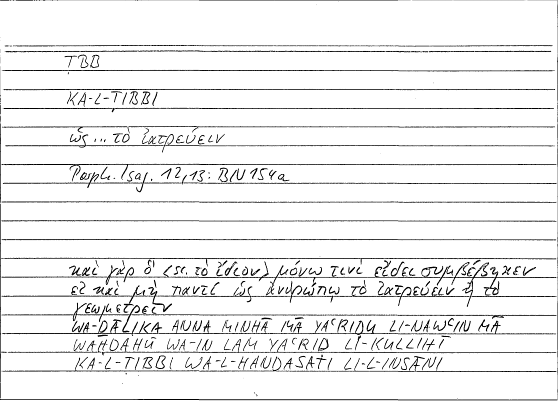 ṬBB
KA-L-ṬIBBI
ὡς ... τὸ ἰατρεύειν
Porph. Isag. 12,13: BN 154a
καὶ γὰρ ὃ (sc. τὸ ἴδιον) μόνῳ τινὶ εἴδει συμβέβηκεν
εἰ καὶ μὴ παντί ὡς ἀνθρώπῳ τὸ ἰατρεύειν ἢ τὸ
γεωμετρεῖν
WA-ḎĀLIKA ANNA MINHĀ MĀ YAʿRIḌU LI-NAWʿIN MĀ
WAḤDAHŪ WA-IN LAM YAʿRIḌ LI-KULLIHĪ
KA-L-ṬIBBI WA-L-HANDASATI LI-L-INSĀNI